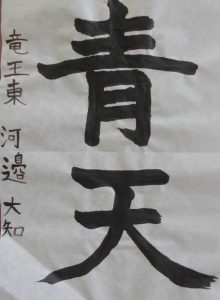 青天
竜王東 河邉 大知